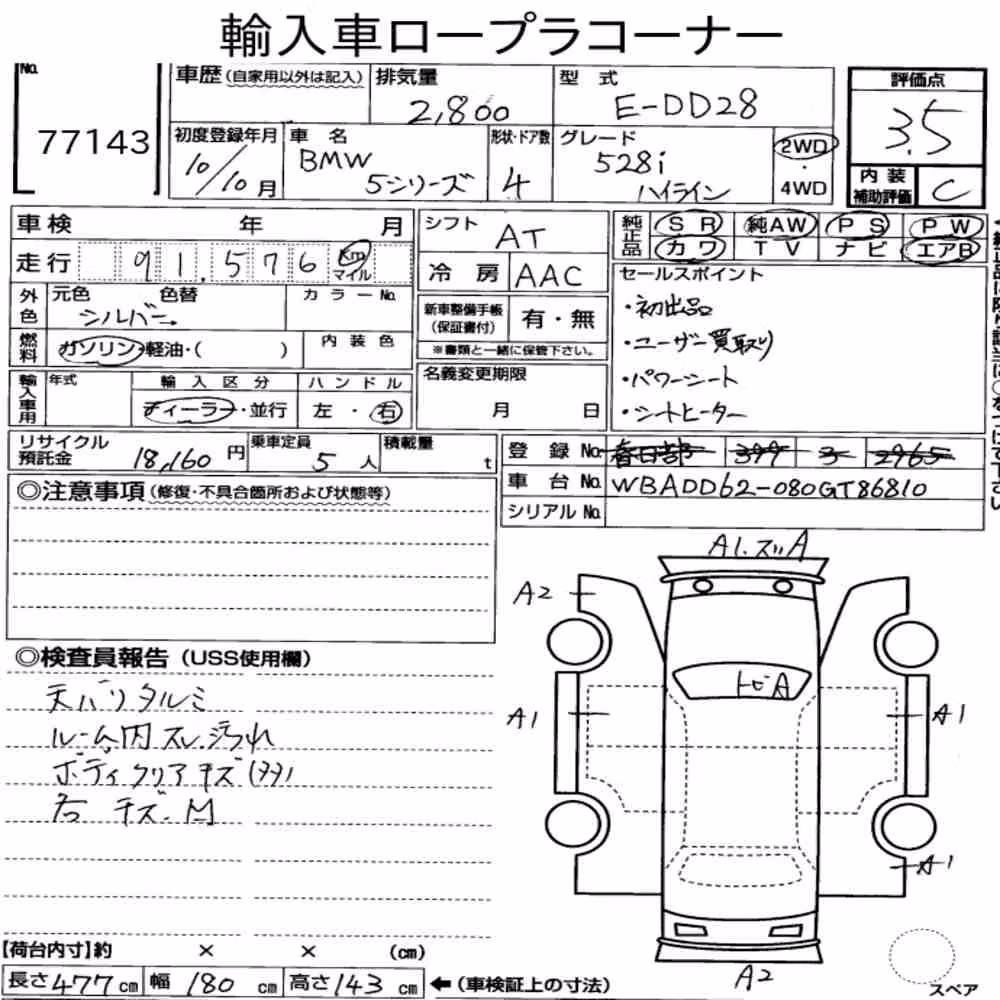 輸入車ロープラコーナー
No.
77143
車歴(自家用以外は記入)
排気量
2,800
型式
E-DD28
評価点
3.5
内装補助評価
C
初度登録年月
10/10月
車名
BMW
5シリーズ
形状・ドア数
4
グレード
528i
ハイライン
2WD
・
4WD
車検 年 月
走行 91.576 Km マイル
シフト
AT
冷房 AAC
純正品 SR 純AW PS PW
カワ TV ナビ エアB
外色
元色 色替
シルバー
カラーNo.
燃料
ガソリン・軽油・( )
内装色
新車整備手帳
(保証書付)
有・無
※書類と一緒に保管下さい。
セールスポイント
・初出品
・ユーザー買取り
・パワーシート
・シートヒーター
輸入車用
年式
輸入区分
ディーラー・並行
ハンドル
左・右
名義変更期限
月 日
リサイクル
預託金
18,160円
乗車定員
5人
積載量
t
登録No. 春日部 399 3 2965
車台No. WBADD62-080GT86810
シリアルNo.
◎注意事項(修復・不具合箇所および状態等)
◎検査員報告(USS使用欄)
天バリタルミ
ルーム内スレ、汚れ
ボディクリアキズ(タタ)
右 キズ、M
A1.ズリA
A2
トビA
A1
A1
A1
A2
スペア
【荷台内寸】約 × × (cm)
長さ477cm 幅180cm 高さ143cm ←(車検証上の寸法)